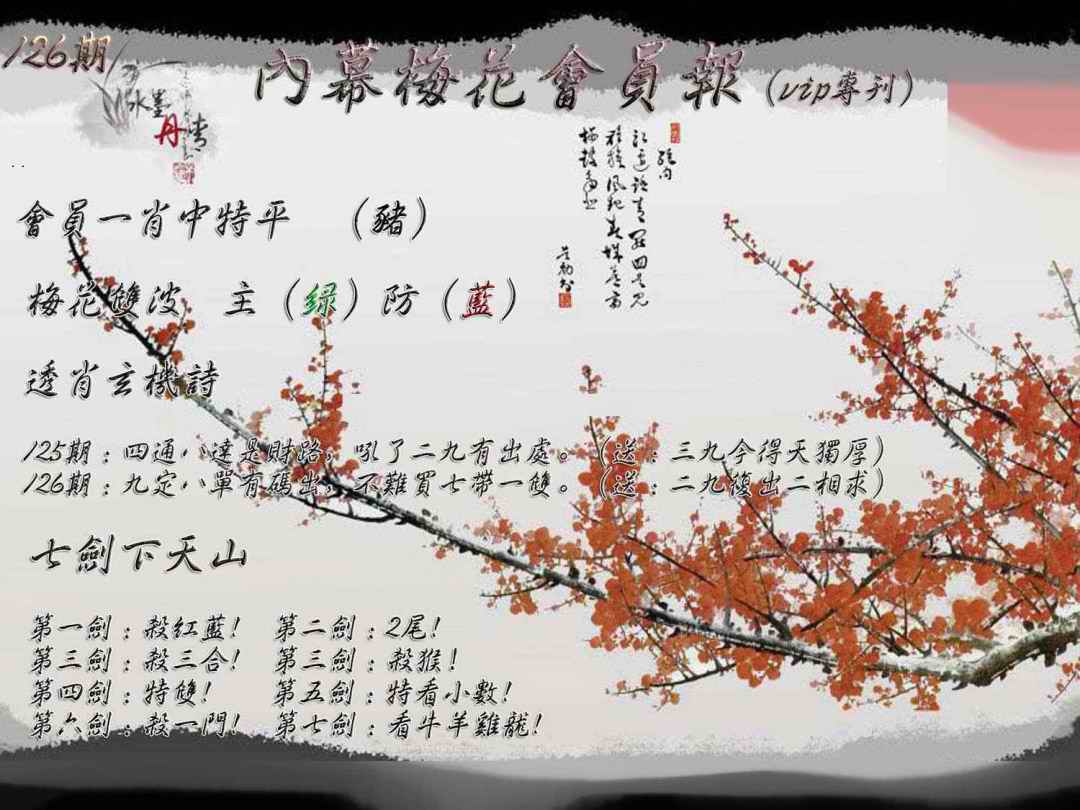 126期
內幕梅花會員報(vip專刊)
水墨
丹青
會員一肖中特平 (豬)
梅花雙波 主(绿)防(藍)
透肖玄機詩
125期:四通八達是財路,吼了二九有出處。(送:三九今得天獨厚)
126期:九定八單有碼出,不難買七帶一雙。(送:二九復出二相求)
七劍下天山
第一劍:殺紅藍! 第二劍:2尾!
第三劍:殺三合! 第三劍:殺猴!
第四劍:特雙! 第五劍:特看小數!
第六劍:殺一門! 第七劍:看牛羊雞龍!